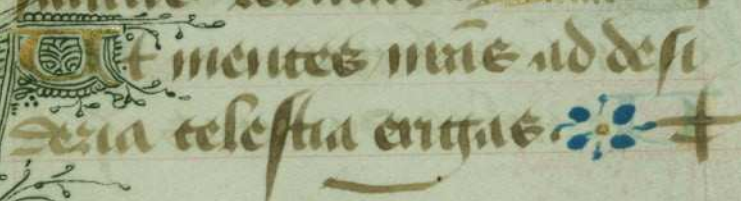 Ut mentes nrãs ad desi
deria celestia erigas